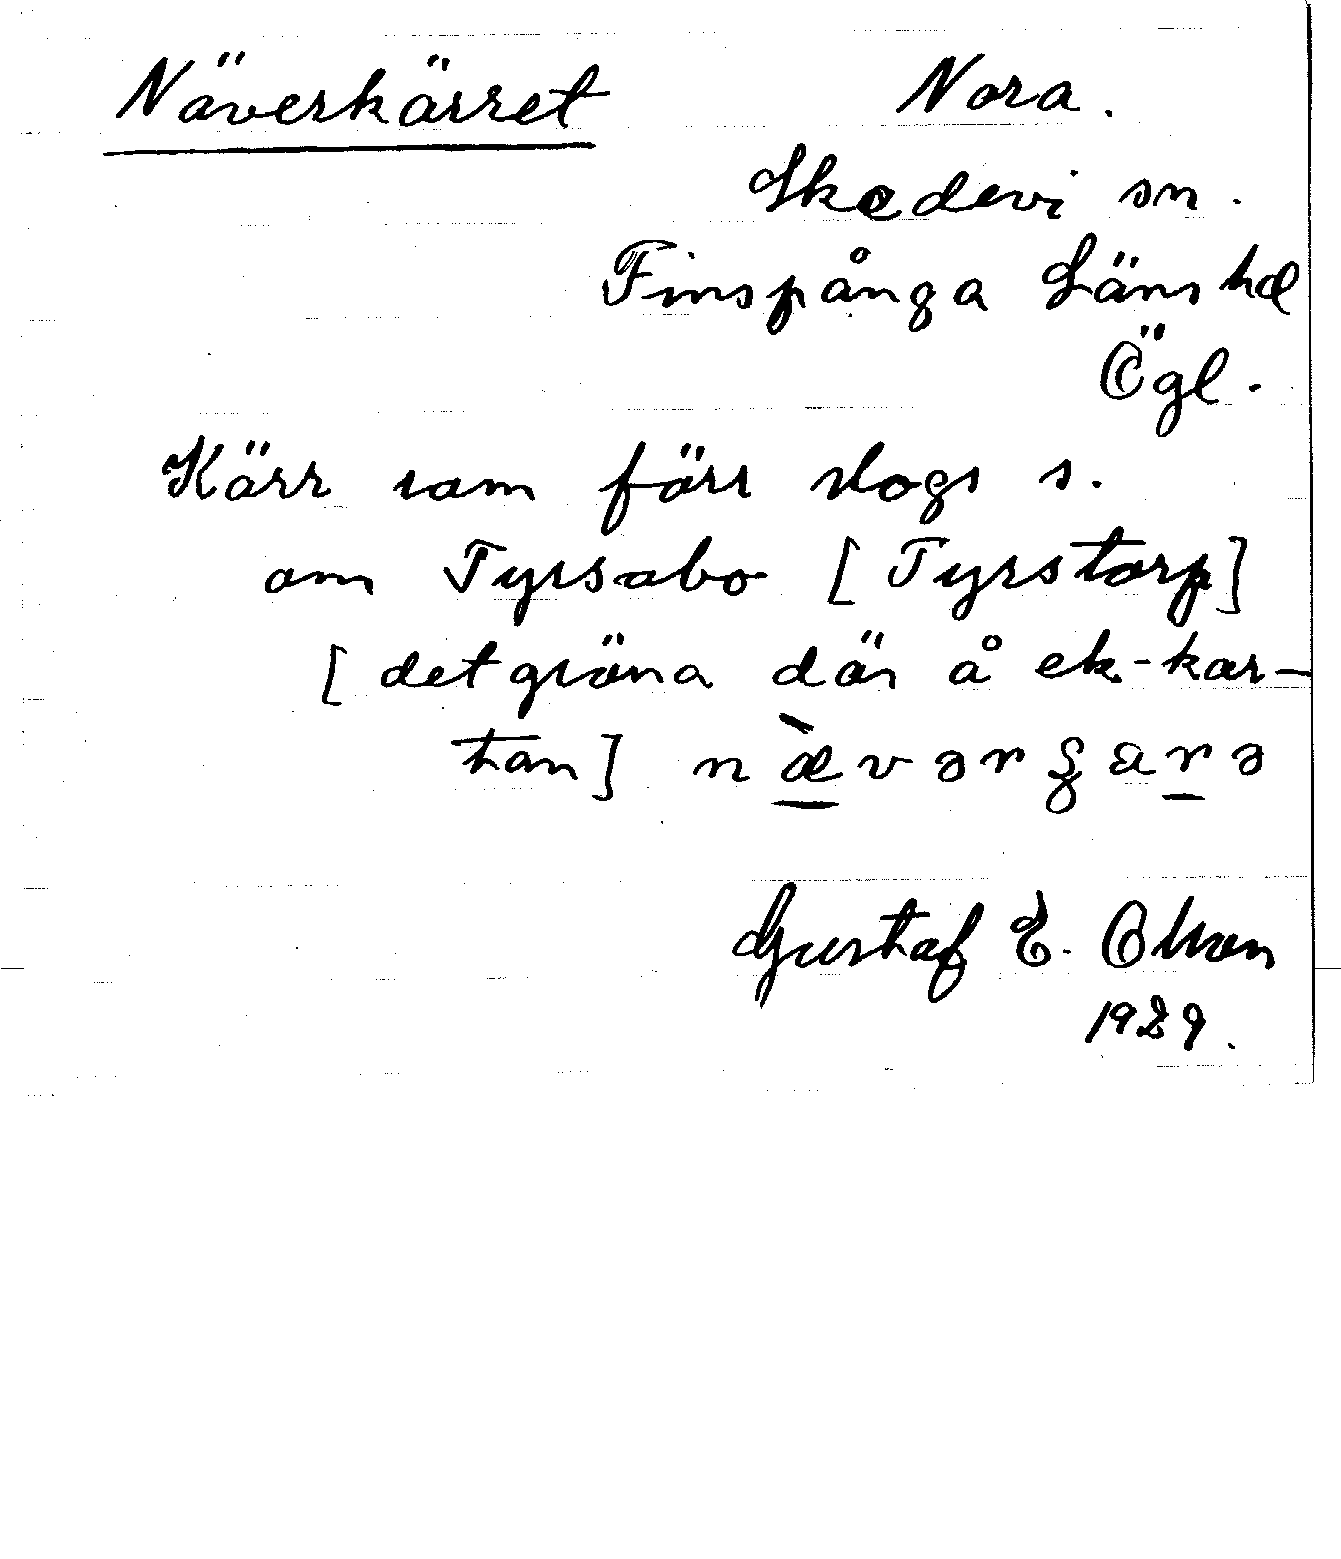 Näverkärret Nora.
Skedevi sn.
Finspånga Läns hd
Ögl.
Kärr som förr slogs s.
om Tyrsabo [Tyrstorp]
[det gröna där å ek-kar-
tan] nævərʂarə
Gustaf E. Olson
1929.